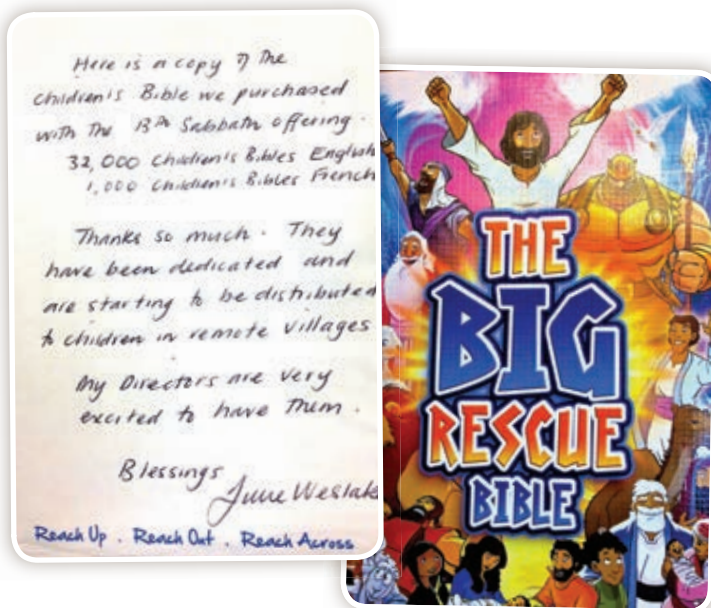 Here is a copy of the
Children's Bible we purchased
with the 13th Sabbath offering.
32,000 Children's Bibles English
1,000 Children's Bibles French
Thanks so much. They
have been dedicated and
are starting to be distributed
to children in remote villages
My Directors are very
excited to have them.
Blessings
June
Reach Up . Reach Out . Reach Across
THE
BIG
RESCUE
BIBLE